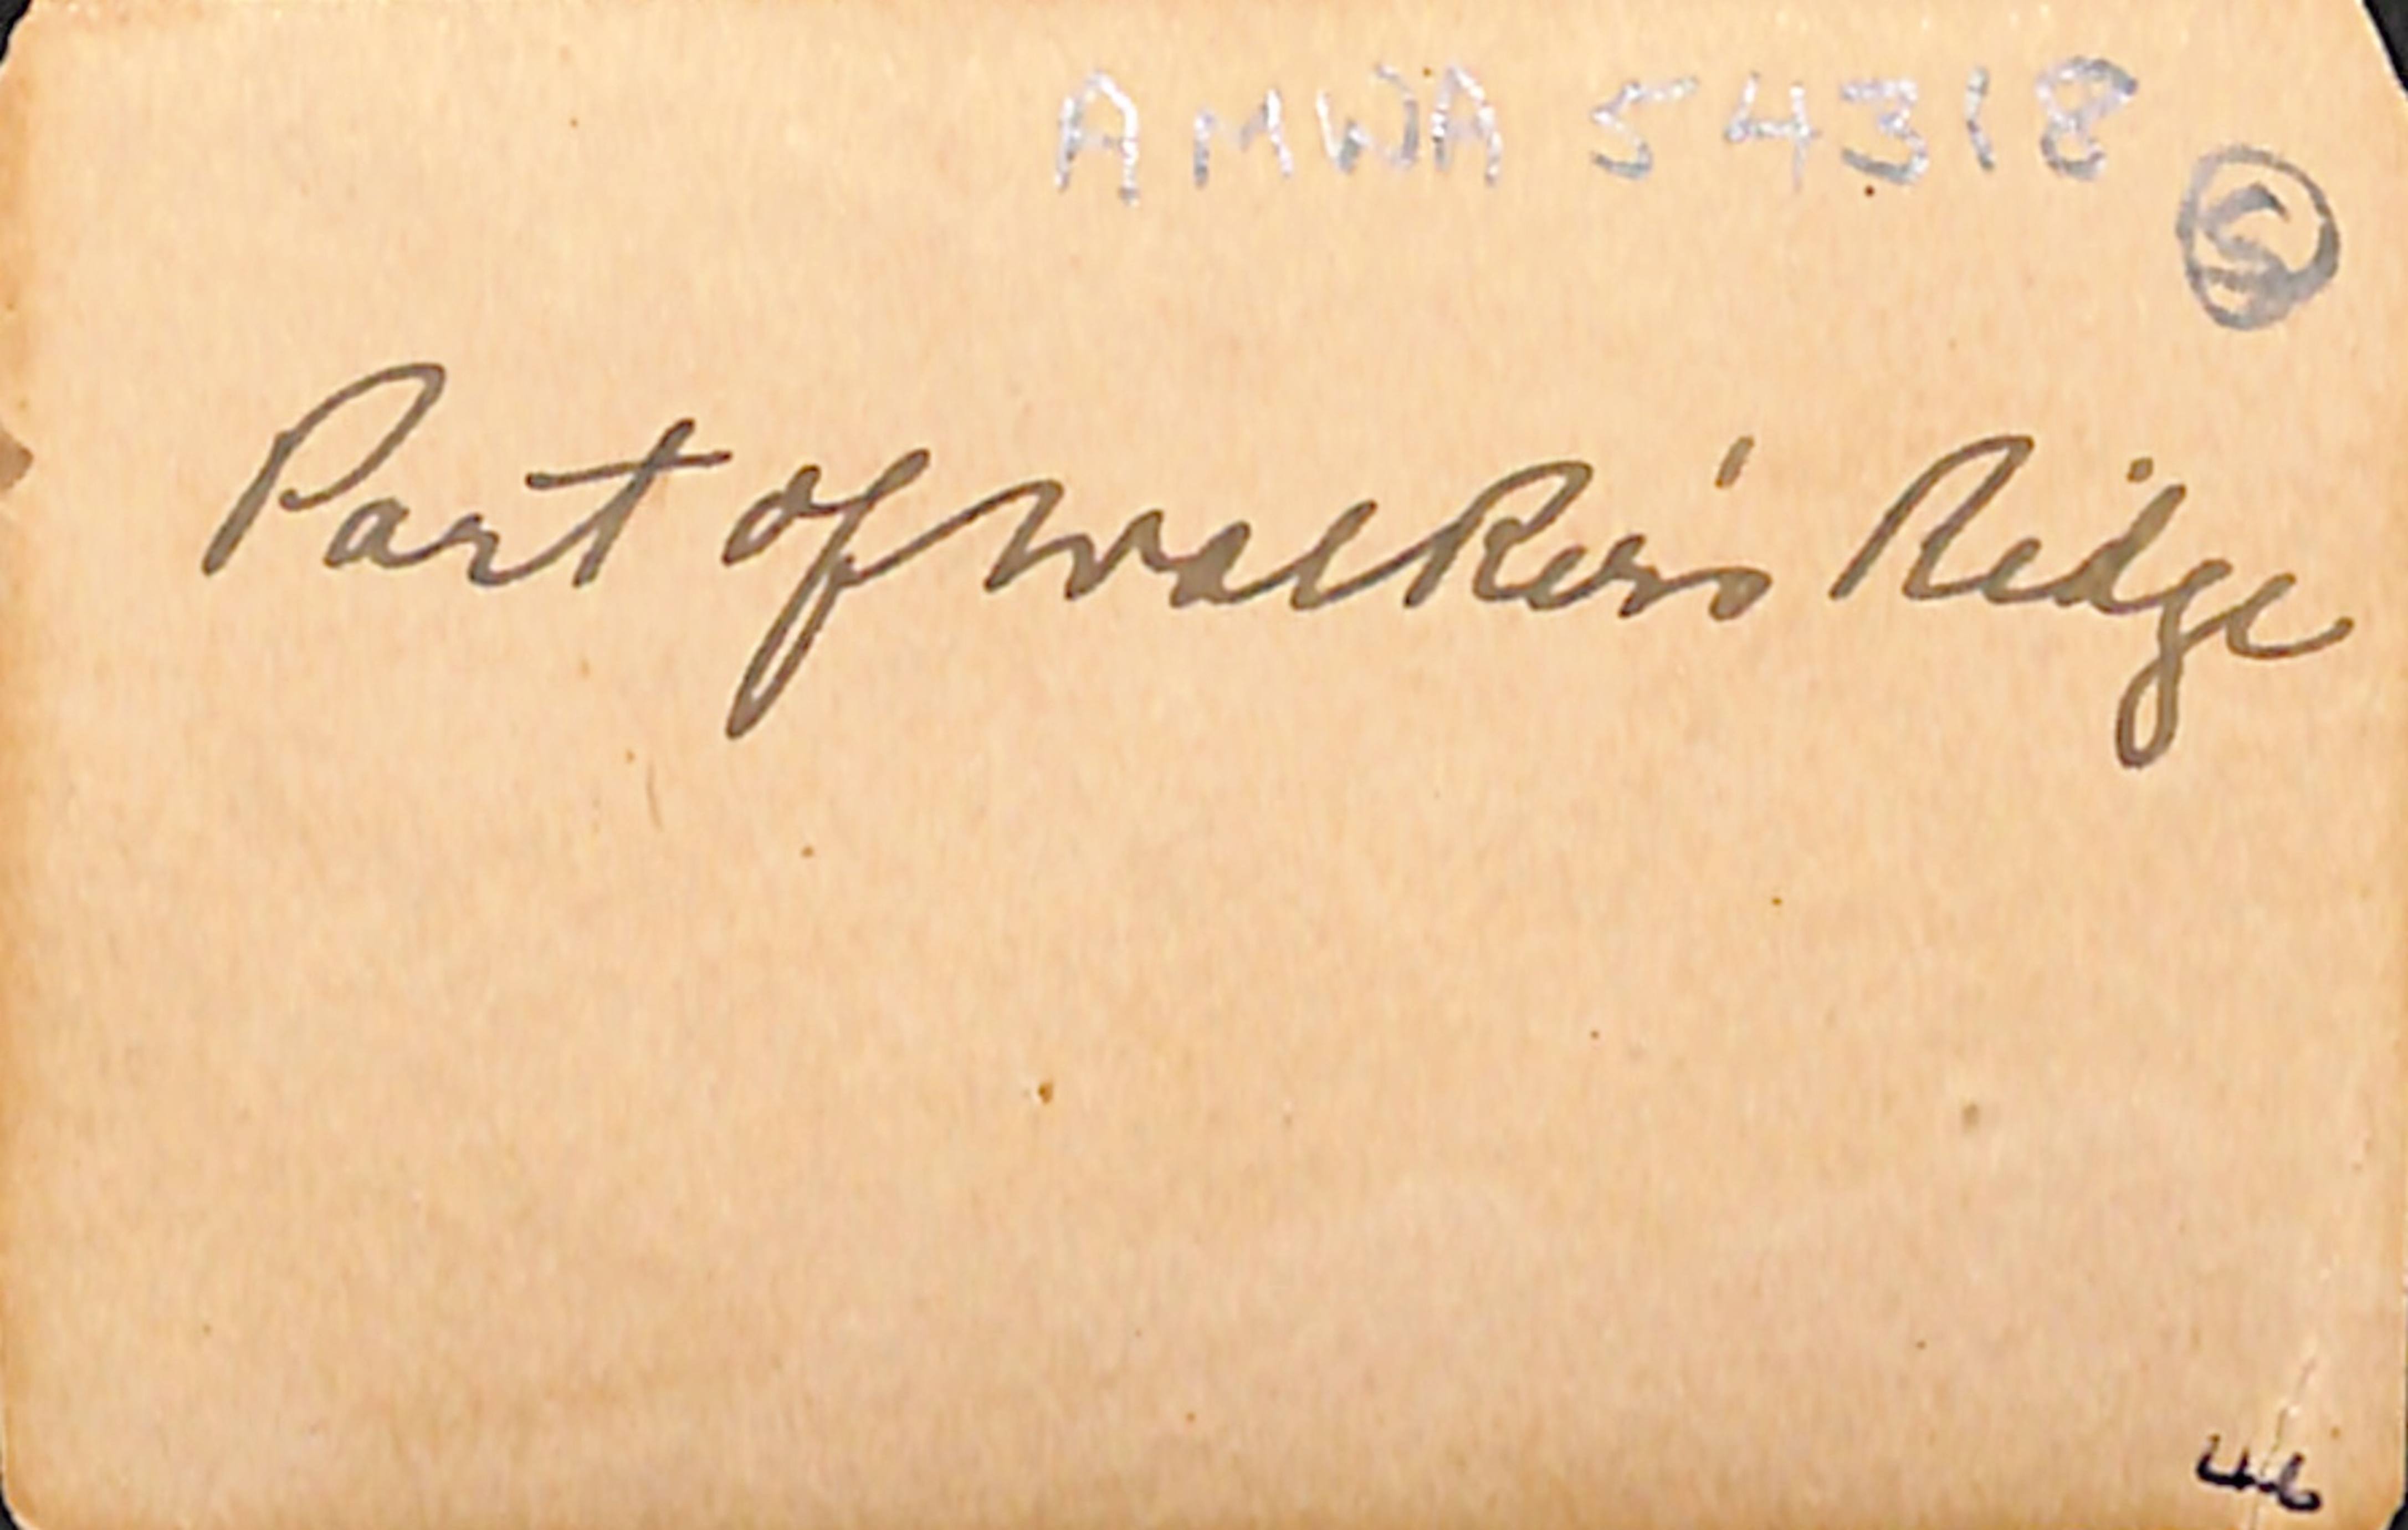 AMWA 54318
Part of Walker's Ridge
46